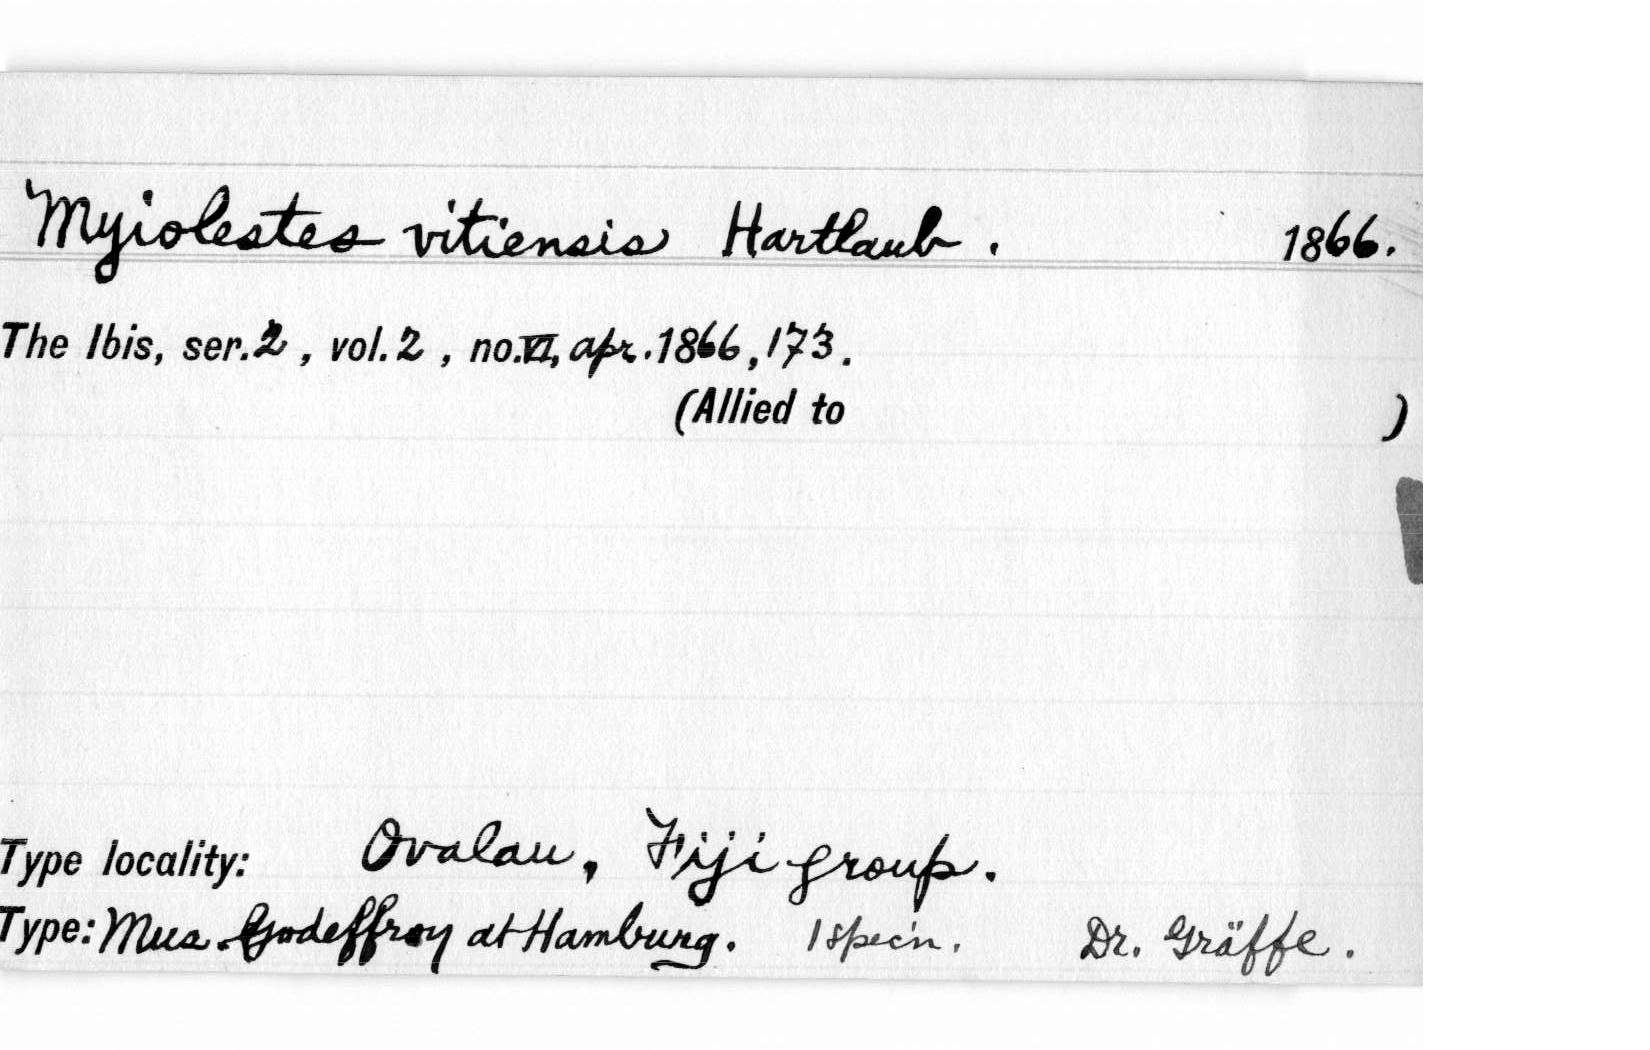 Myiolestes vitiensis Hartlaub. 1866.
The Ibis, ser.2, vol.2, no.VI, apr.1866, 173.
(Allied to )
Type locality: Ovalau, Fiji group.
Type: Mus. Godeffroy at Hamburg. 1 specn. Dr. Gräffe.